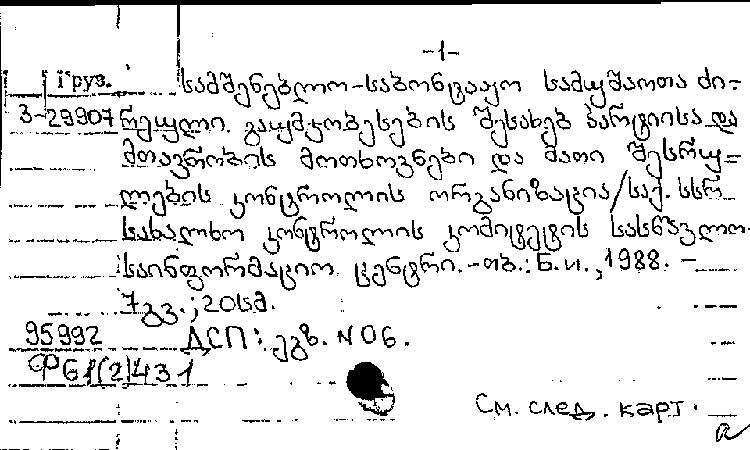 -1-
Груз. სამშენებლო-სამონტაჟო სამუშაოთა ძი-
3-29907 რეული გაუმჯობესების შესახებ პარტიისა და
მთავრობის მოთხოვნები და მათი შესრუ-
ლების კონტროლის ორგანიზაცია/საქ. სსრ
სახალხო კონტროლის კომიტეტის სასწავლო-
საინფორმაციო ცენტრი.-თბ.: Б.и., 1988. -
7გვ.; 20სმ.
95992 ДСП: ეგზ. N 06.
Ф61(2)431
См. след. карт.